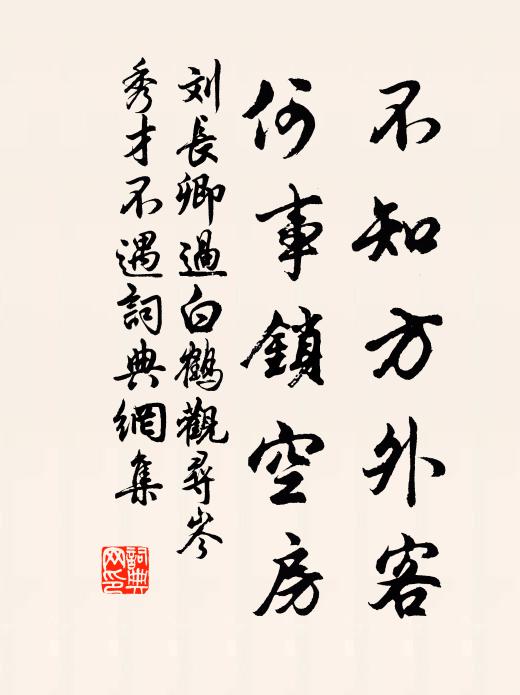 不知方外客
何事鎖空房
刘長卿過白鶴觀尋岑
秀才不遇詞典網集
詞典網印